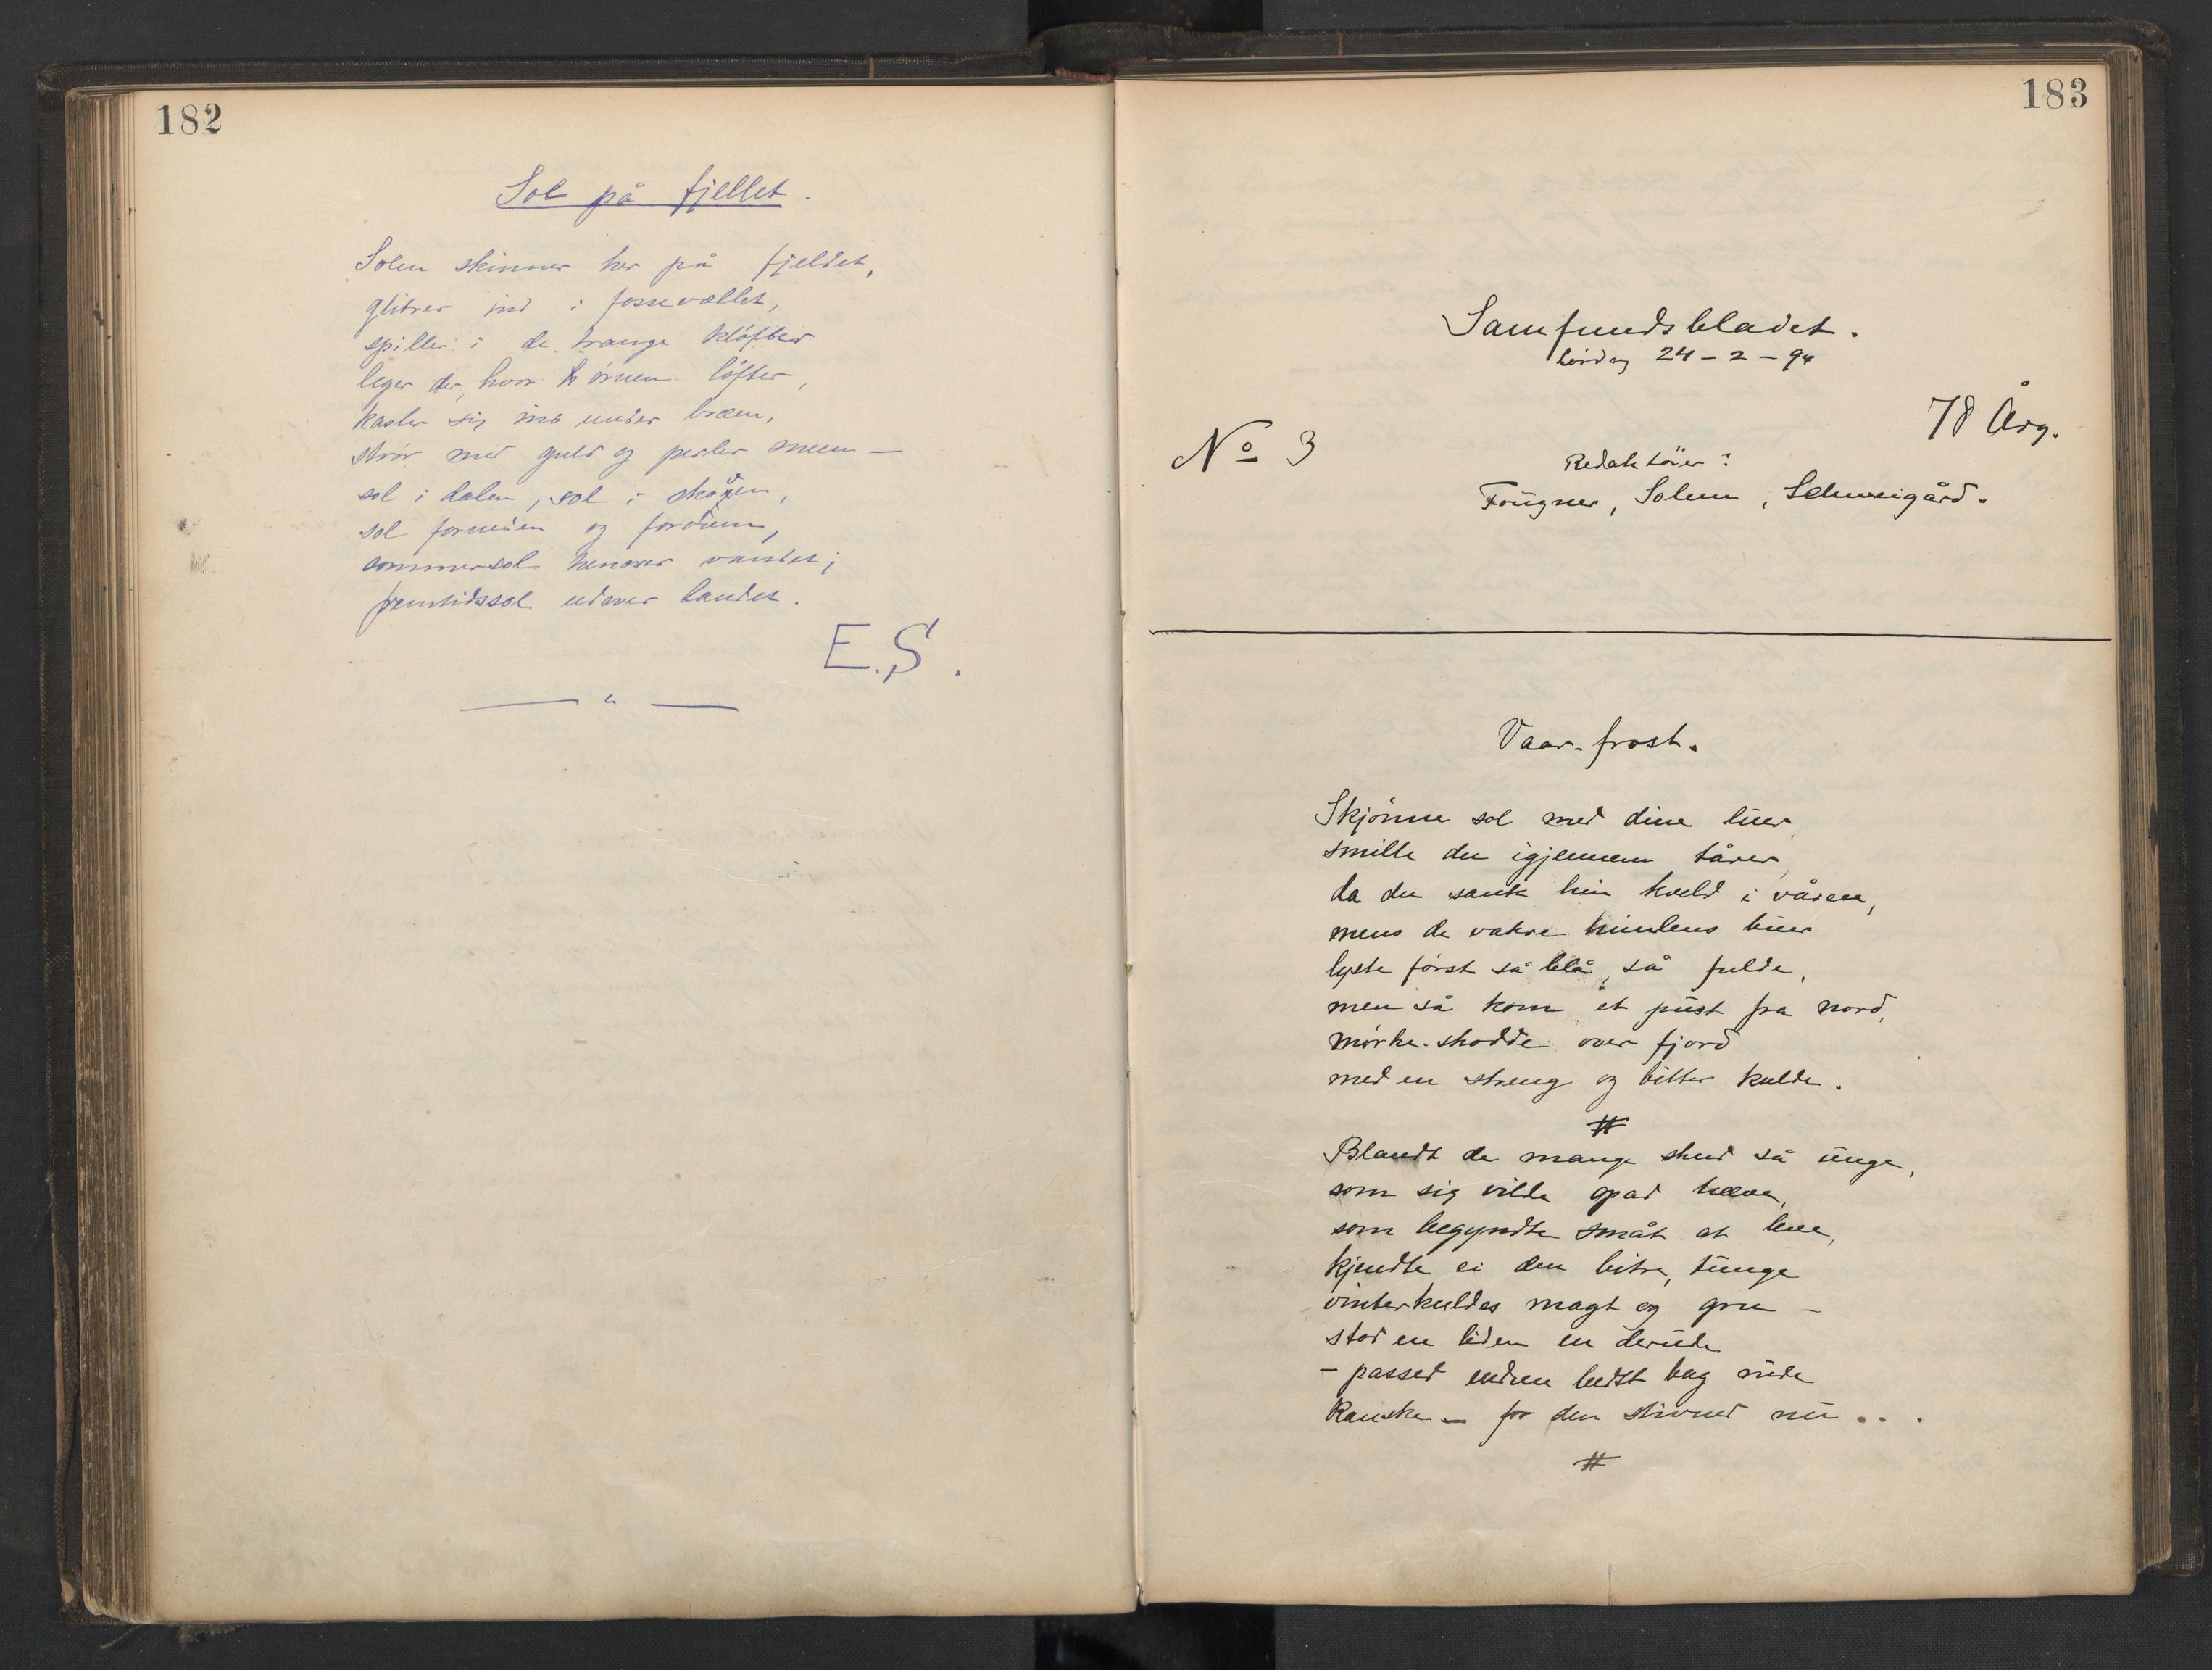 182
Sol på fjellet.
Solen skinner her på fjeldet,
glitrer ind i fossevællet,
spiller i de trange kløfter
leger der, hvor ørnen løfter,
kaster sig ind under bræen,
strør med guld og perler sneen —
sol i dalen, sol i skoven,
sol forneden og foroven,
sommersol henover vandet;
fremtidssol udover landet.
E.S.
183
Samfundsbladet.
Lørdag 24-2-94
78 Årg.
No 3
Redaktører:
Fougner, Solem, Schweigård.
Vaar-frost.
Skjønne sol med dine luer
smilte du igjennem tårer,
da du sank hin kveld i våren,
mens de vakre himlens buer
lyste først så blå, så fulde,
men så kom et pust fra nord,
mørke-skodde over fjord
med en streng og bitter kulde.
#
Blandt de mange skud så unge,
som sig vilde opad hæve,
som begyndte småt at leve,
kjendte ei den bitre, tunge
vinterkuldes magt og gru –
stod en liden en derude
– passed endnu bedst bag rude
kanske – for den stivned nu...
#